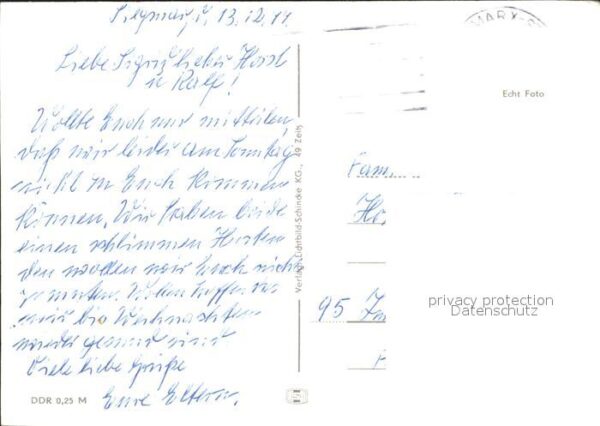 Siegmar, d. 13.12.77
Liebe Sigrid lieber Horst
u Ralf!
Wollte Euch nur mitteilen,
daß wir leider am Sonntag
nicht zu Euch kommen
können. Wir haben beide
einen schlimmen Husten
den wollen wir Euch nicht
zumuten. Wollen hoffen das
wir bis Weihnachten
wieder gesund sind
Viele liebe Grüße
Eure Eltern.
DDR 0,25 M
Verlag Lichtbild-Schincke KG., 49 Zeitz
MARX-S
Echt Foto
Fam
Ho
95 Zw
privacy protection
Datenschutz